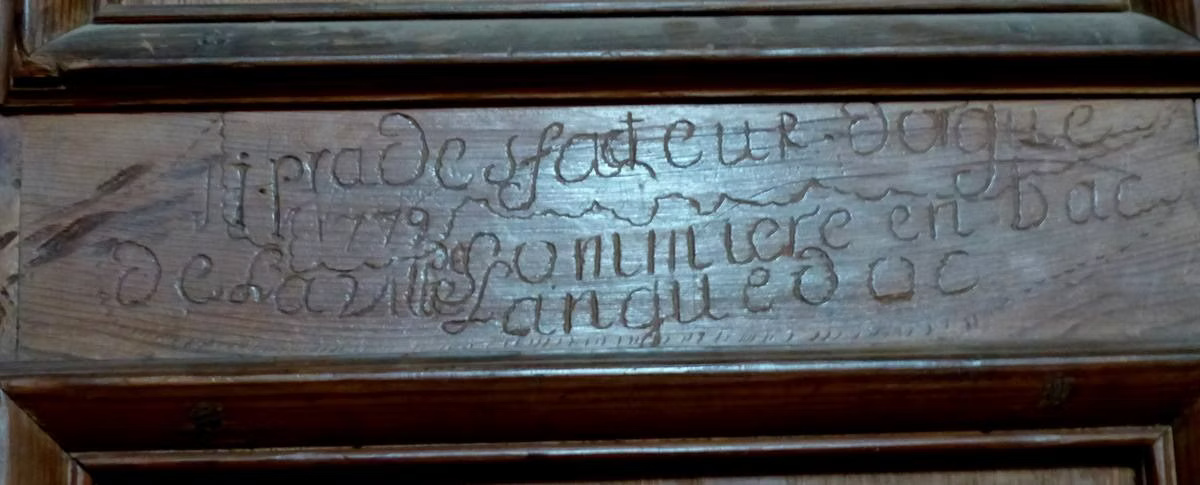 jj prades facteur dorgue
1779 Sommiere en bac
De La ville Languedoc